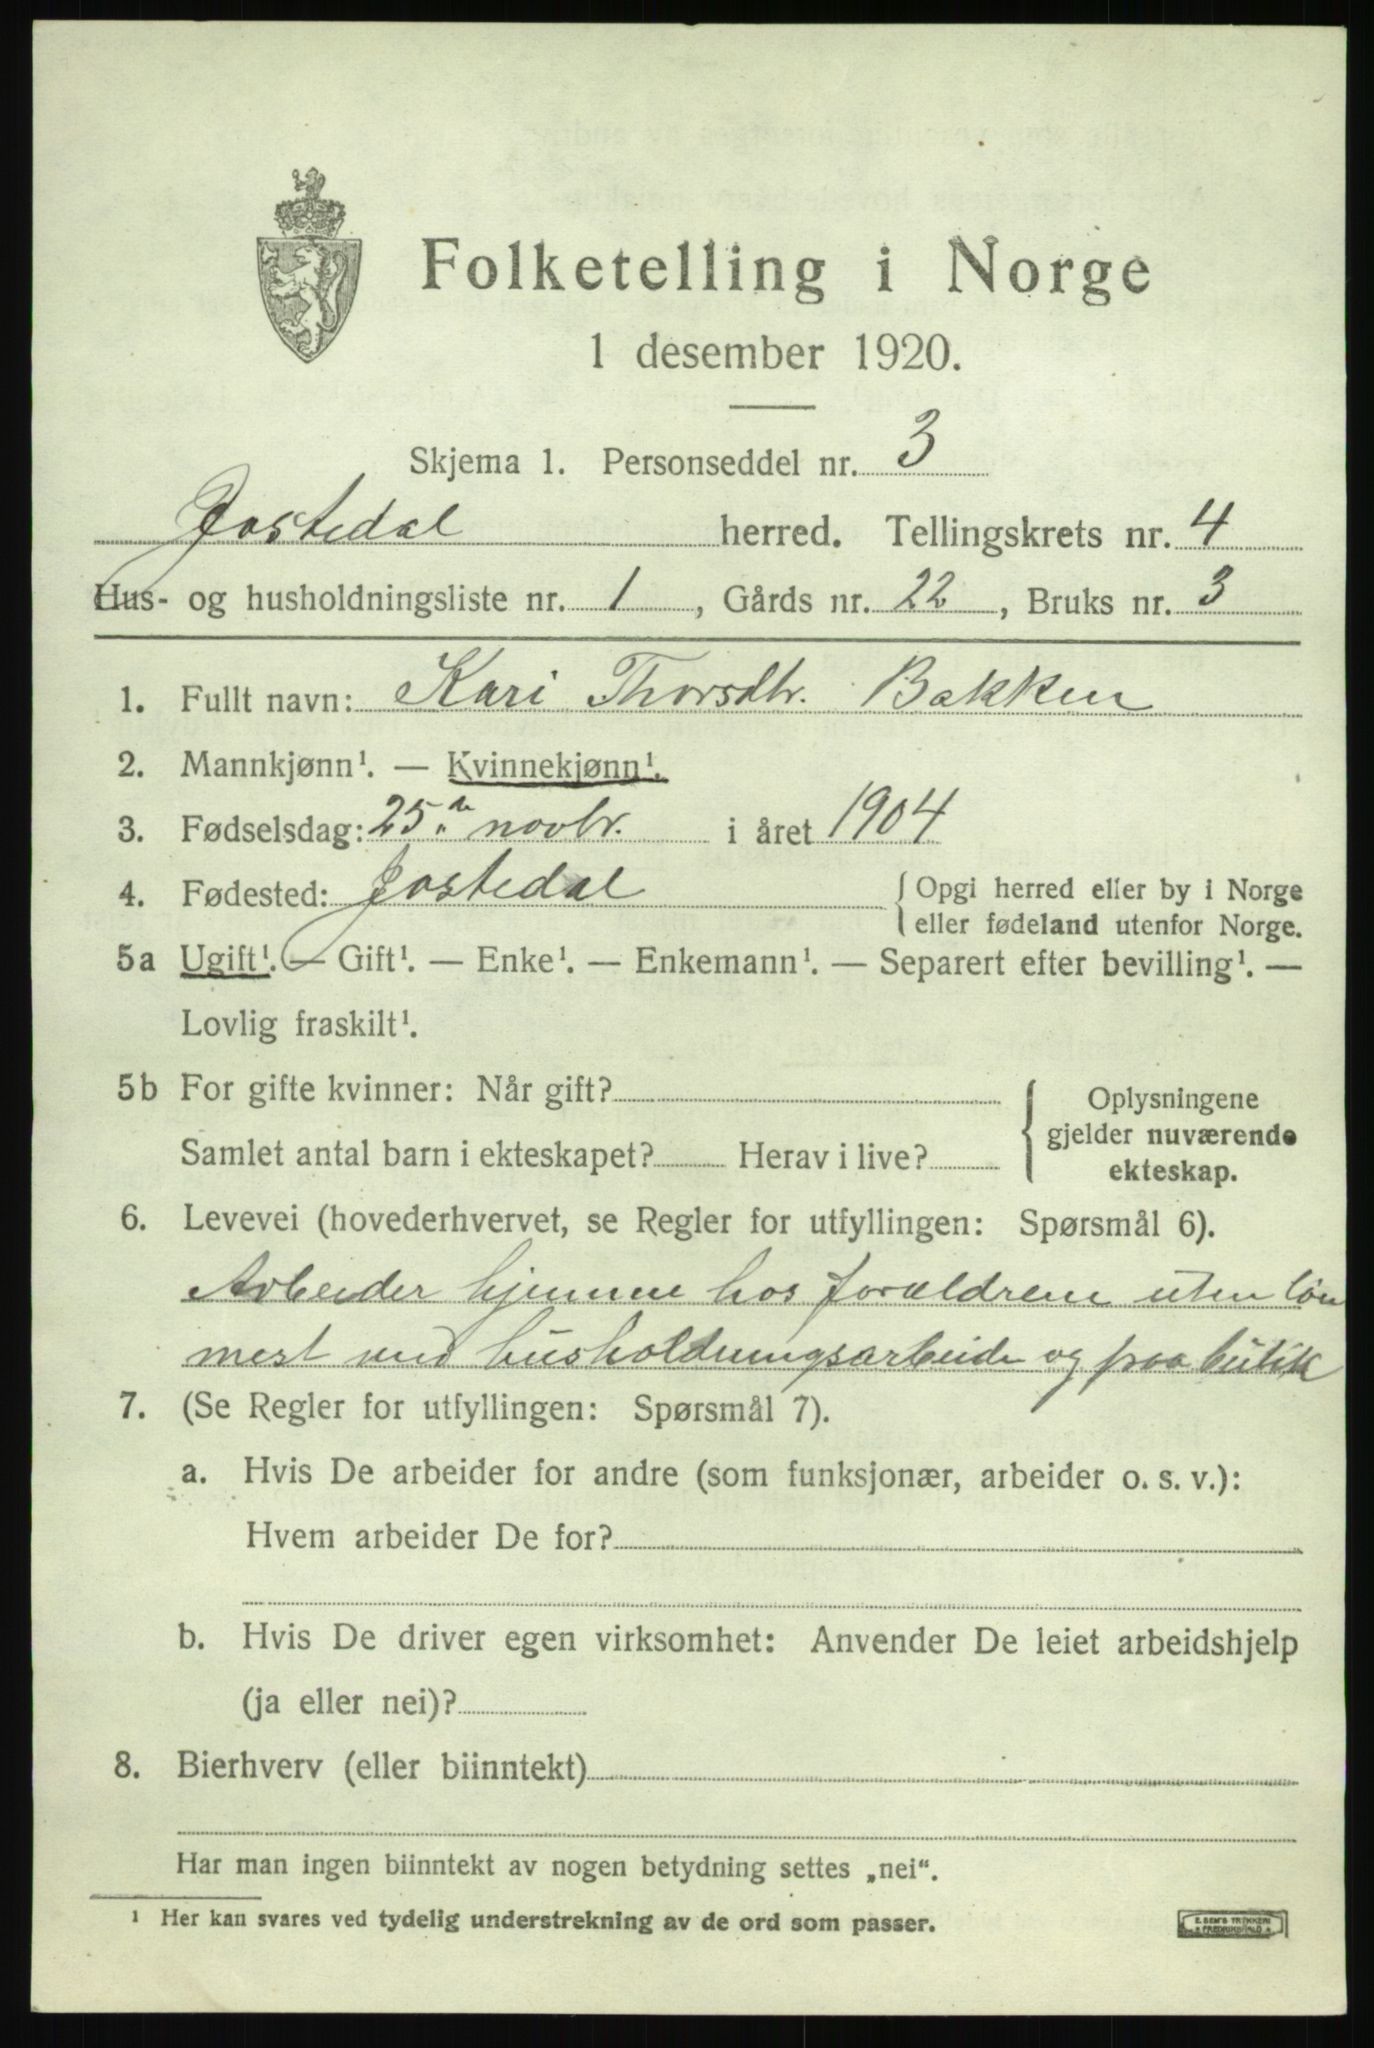 Folketelling i Norge
1 desember 1920.
Skjema 1. Personseddel nr. 3
Jostedal herred. Tellingskrets nr. 4
Hus- og husholdningsliste nr. 1, Gårds nr. 22, Bruks nr. 3
1. Fullt navn: Kari Thorsdtr. Bakken
2. Mannkjønn¹. — Kvinnekjønn¹.
3. Fødselsdag: 25de novbr. i året 1904
4. Fødested: Jostedal { Opgi herred eller by i Norge
eller fødeland utenfor Norge.
5a Ugift¹. — Gift¹. — Enke¹. — Enkemann¹. — Separert efter bevilling¹. —
Lovlig fraskilt¹.
5b For gifte kvinner: Når gift? { Oplysningene
gjelder nuværende
Samlet antal barn i ekteskapet? Herav i live?
ekteskap.
6. Levevei (hovederhvervet, se Regler for utfyllingen: Spørsmål 6).
Arbeider hjemme hos forældrene uten løn
mest ved husholdningsarbeide og paa butik
7. (Se Regler for utfyllingen: Spørsmål 7).
a. Hvis De arbeider for andre (som funksjonær, arbeider o. s. v.):
Hvem arbeider De for?
b. Hvis De driver egen virksomhet: Anvender De leiet arbeidshjelp
(ja eller nei)?
8. Bierhverv (eller biinntekt)
Har man ingen biinntekt av nogen betydning settes „nei“.
¹ Her kan svares ved tydelig understrekning av de ord som passer.